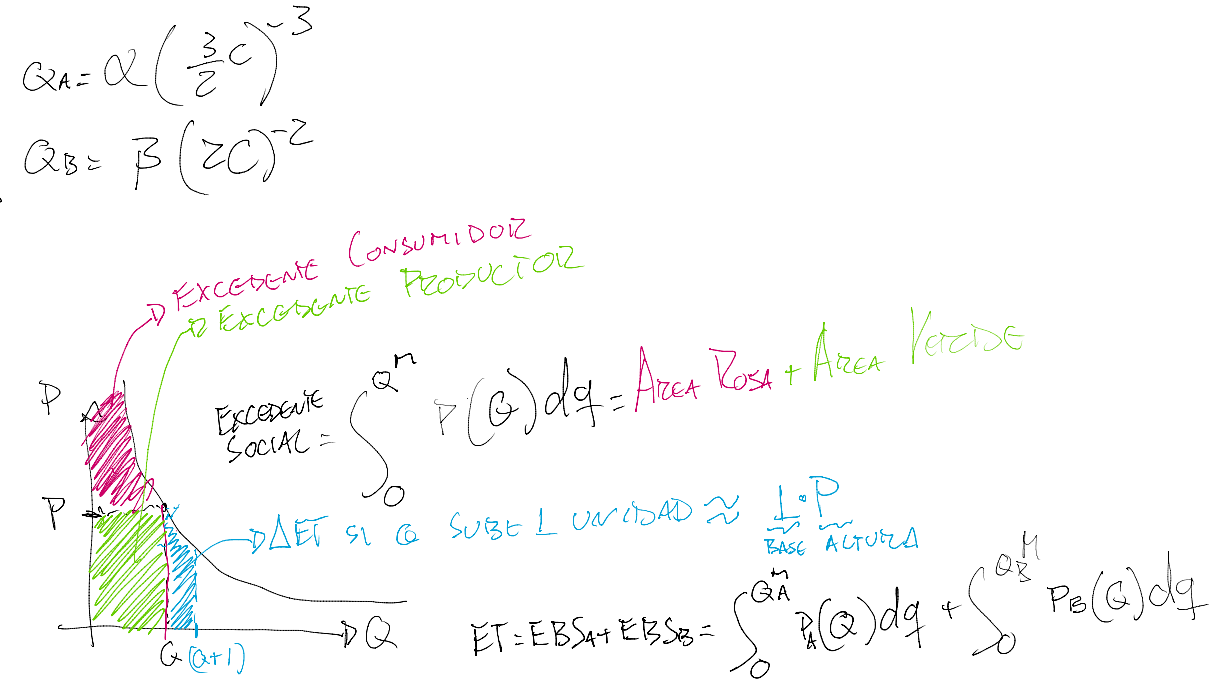 QA = α(3/2 C)^-3
QB = β(2C)^-2
EXCEDENTE CONSUMIDOR
EXCEDENTE PRODUCTOR
EXCEDENTE SOCIAL = ∫_0^{Q^M} P(Q)dq = AREA ROSA + AREA VERDE
P
P
ΔET SI Q SUBE 1 UNIDAD ≈ 1 · P
BASE ALTURA
Q
Q (Q+1)
ET = EBSA + EBSB = ∫_0^{QA^M} PA(Q)dq + ∫_0^{QB^M} PB(Q)dq